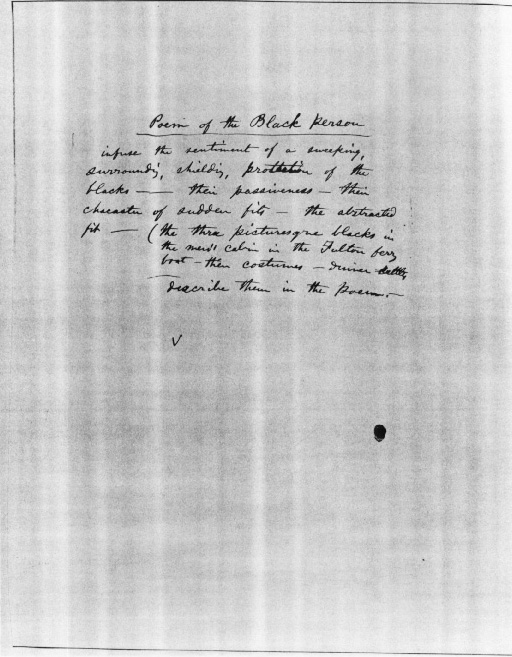 Poem of the Black person
infuse the sentiment of a sweeping,
surrounding, shielding, protection of the
blacks — — their passiveness — their
character of sudden fits — the abstracted
fit — (the three picturesque blacks in
the men's cabin in the Fulton ferry
boat — their costumes — dinner
describe them in the Poem. —
V